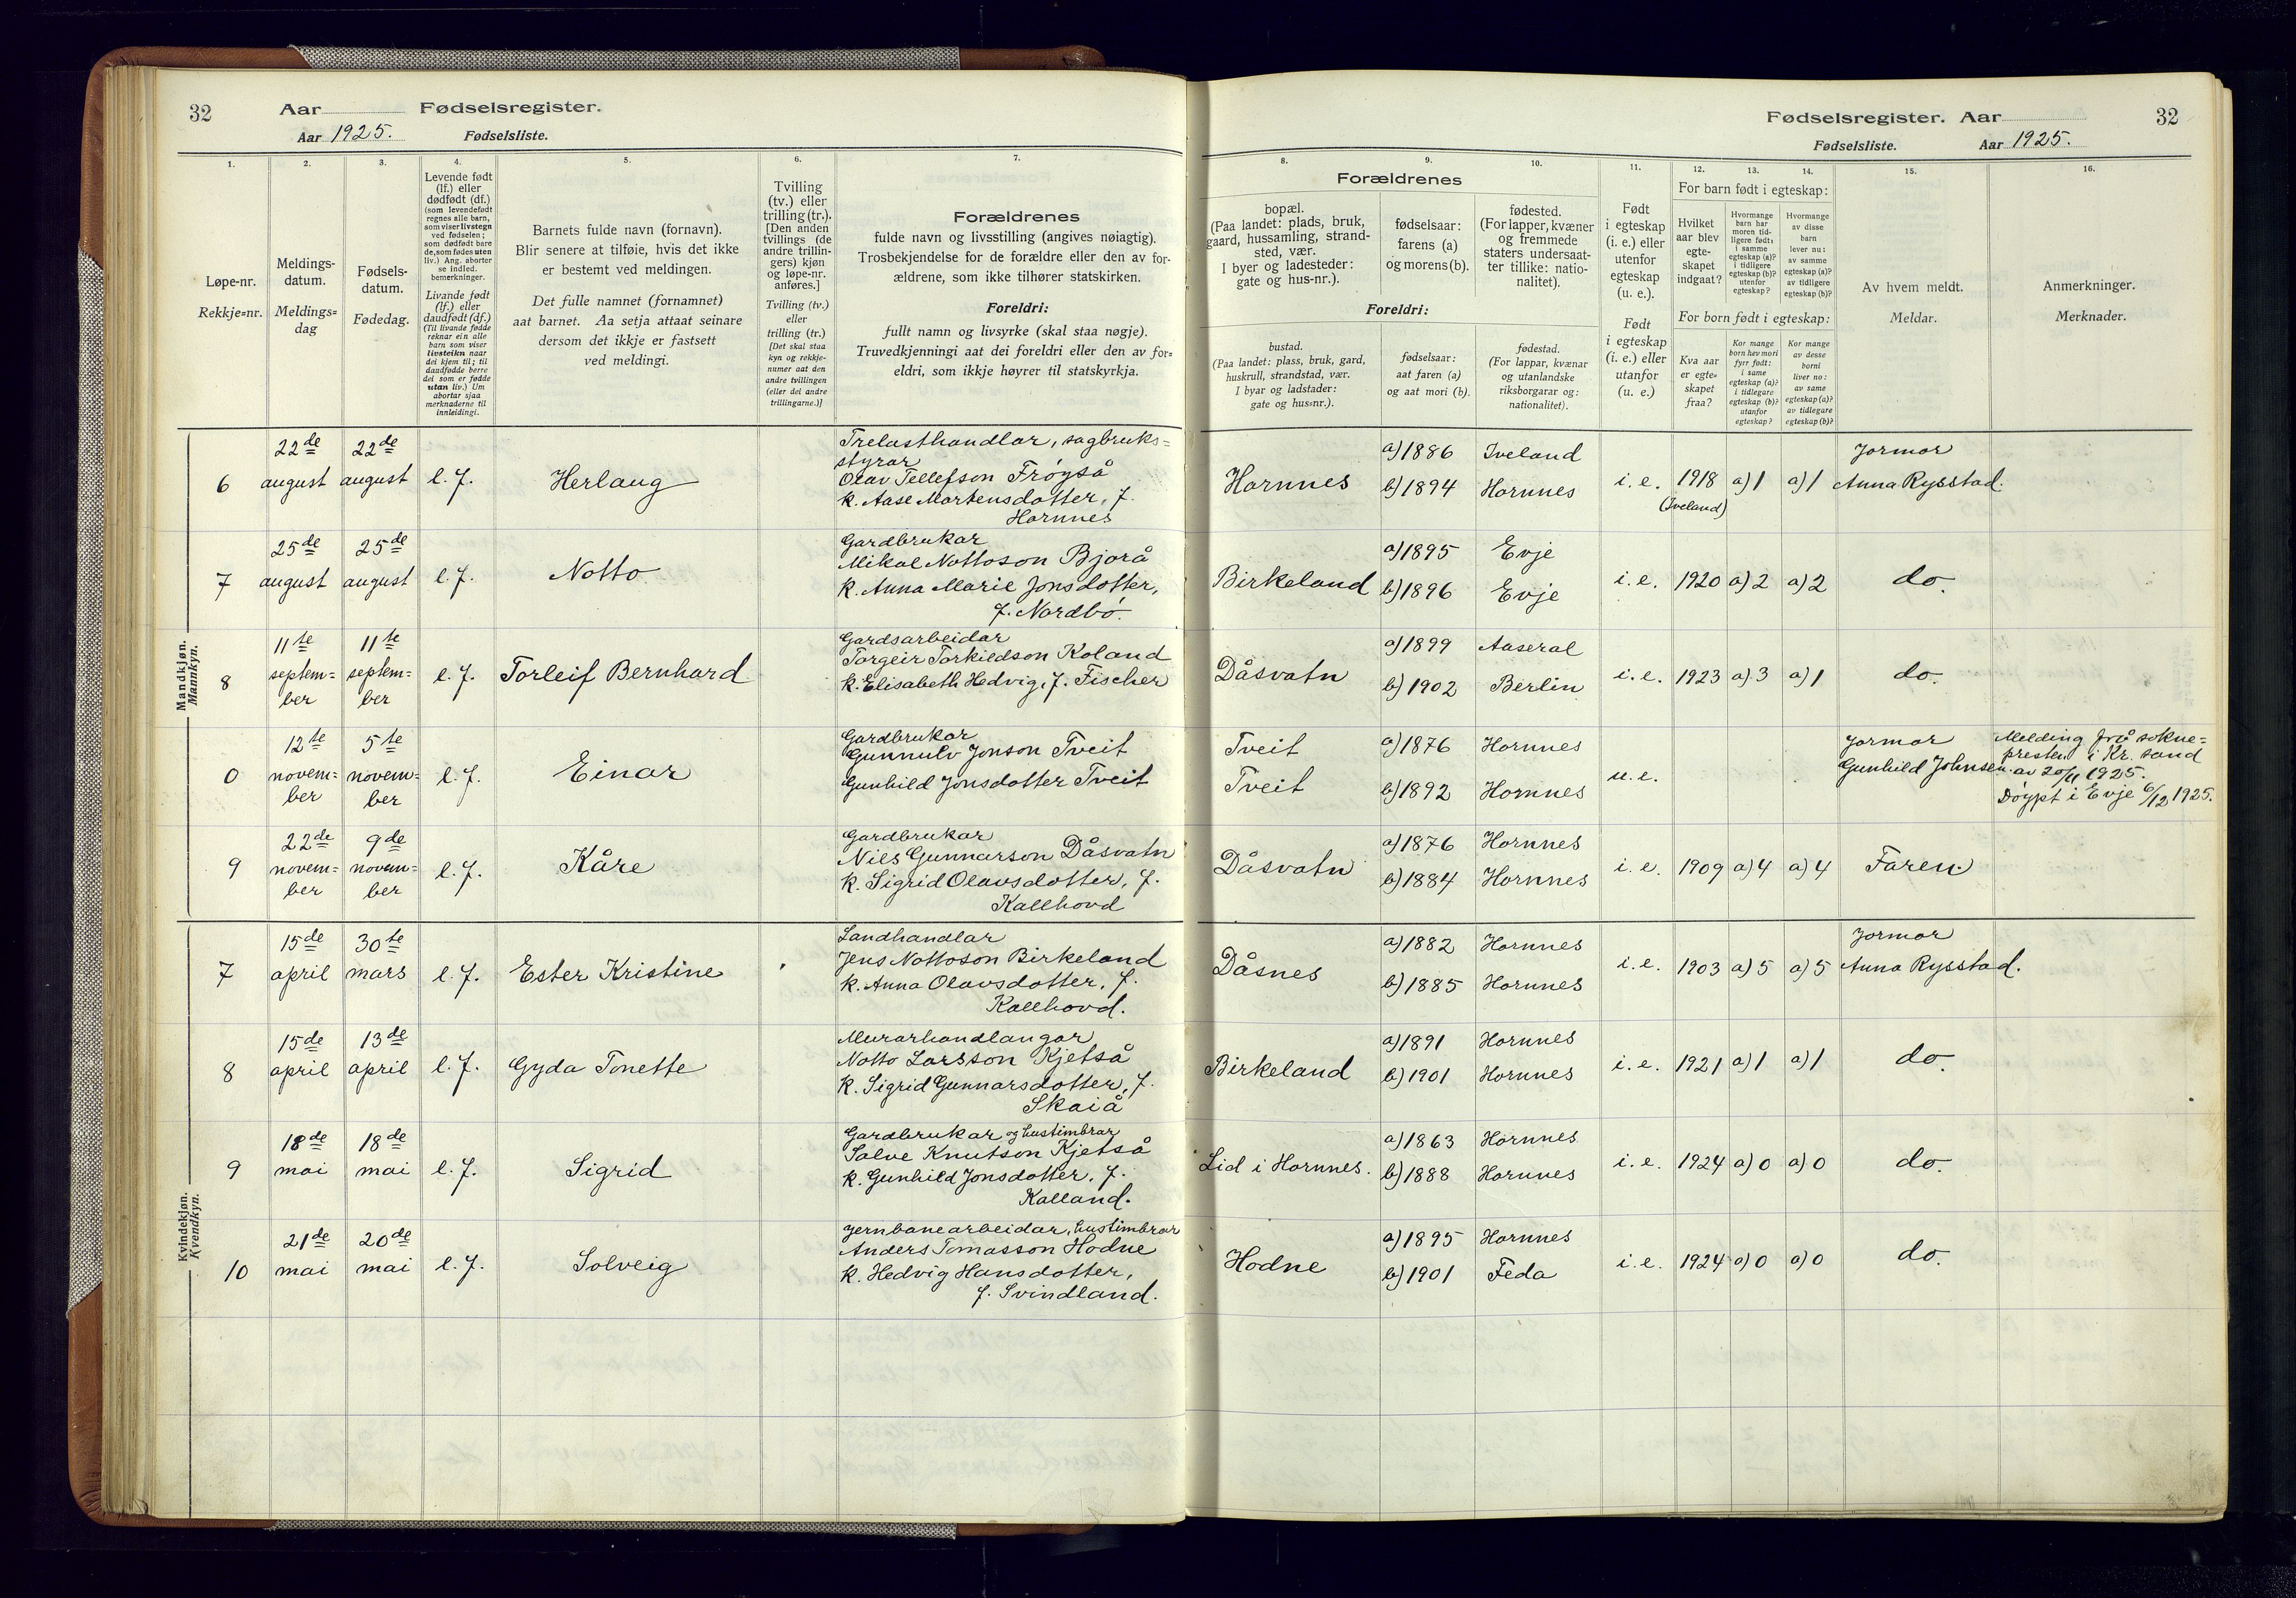 32 Aar Fødselsregister.
Aar 1925. Fødselsliste.
1. 2. 3. 4. 5. 6. 7.
Løpe-nr.
Rekkje=nr.
Meldings-
datum.
Meldings=
dag
Fødsels-
datum.
Fødedag.
Levende født
(lf.) eller
dødfødt (df.)
(som levendefødt
regnes alle barn,
som viser livstegn
ved fødselen;
som dødfødt bare
de, som fødes uten
liv.) Ang. aborter
se indled.
bemerkninger.
Livande født
(lf.) eller
daudfødt (df.)
(Til livande fødde
reknar ein alle
barn som viser
livsteikn naar
dei kjem til; til
daudfødde berre
dei som er fødde
utan liv.) Um
abortar sjaa
merknaderne til
innleidingi.
Barnets fulde navn (fornavn).
Blir senere at tilføie, hvis det ikke
er bestemt ved meldingen.
Det fulle namnet (fornamnet)
aat barnet. Aa setja attaat seinare
dersom det ikkje er fastsett
ved meldingi.
Tvilling
(tv.) eller
trilling (tr.).
[Den anden
tvillings (de
andre trillin-
gers) kjøn
og løpe-nr.
anføres.]
Tvilling (tv.)
eller
trilling (tr.)
[Det skal staa
kyn og rekkje-
numer aat den
andre tvillingen
(eller dei andre
trillingarne.)]
Forældrenes
fulde navn og livsstilling (angives nøiagtig).
Trosbekjendelse for de forældre eller den av for-
ældrene, som ikke tilhører statskirken.
Foreldri:
fullt namn og livsyrke (skal staa nøgje).
Truvedkjenningi aat dei foreldri eller den av for=
eldri, som ikkje høyrer til statskyrkja.
Mandkjøn.
Mannkyn.
6 22de august 22de august l. f. Herlaug
Trelasthandlar, sagbruks=
styrar
Olav Tellefson Frøyså
k. Aase Martensdotter, f.
Hornnes
7 25de august 25de august l. f. Notto
Gardbrukar
Mikal Nottoson Bjorå
k. Anna Marie Jonsdotter,
f. Nordbö.
8 11te septem=ber 11te septem=ber l. f. Torleif Bernhard
Gardsarbeidar
Torgeir Torkildson Koland
k. Elisabeth Hedvig, f. Fischer
0 12te novem=ber 5te novem=ber l. f. Einar
Gardbrukar
Gunnulv Jonson Tveit
Gunhild Jonsdotter Tveit
9 22de novem=ber 9de novem=ber l. f. Kåre
Gardbrukar
Nils Gunnarson Dåsvatn
k. Sigrid Olavsdotter, f.
Kallhovd
Kvindekjøn.
Kvendkyn.
7 15de april 30te mars l. f. Ester Kristine
Landhandlar
Jens Nottoson Birkeland
k. Anna Olavsdotter, f.
Kallhovd.
8 15de april 13de april l. f. Gyda Tonette
Murarhandlangar
Notto Larsson Kjetså
k. Sigrid Gunnarsdotter, f.
Skaiå
9 18de mai 18de mai l. f. Sigrid
Gardbrukar og hustimbrar
Salve Knutson Kjetså
k. Gunhild Jonsdotter, f.
Kalland.
10 21de mai 20de mai l. f. Solveig
Jernbanearbeidar, hustimbrar
Anders Tomasson Hodne
k. Hedvig Hansdotter,
f. Svindland.
Fødselsregister. Aar 32
Fødselsliste. Aar 1925.
8. 9. 10. 11. 12. 13. 14. 15. 16.
Forældrenes
bopæl.
(Paa landet: plads, bruk,
gaard, hussamling, strand-
sted, vær.
I byer og ladesteder:
gate og hus-nr.).
fødselsaar:
farens (a)
og morens (b).
fødested.
(For lapper, kvæner
og fremmede
staters undersaat-
ter tillike: natio-
nalitet).
Foreldri:
bustad.
(Paa landet: plass, bruk, gard,
huskrull, strandstad, vær.
I byar og ladstader:
gate og hus=nr.).
fødselsaar:
aat faren (a)
og aat mori (b).
fødestad.
(For lappar, kvænar
og utanlandske
riksborgarar og:
nationalitet).
Født
i egteskap
(i. e.) eller
utenfor
egteskap
(u. e.).
Født
i egteskap
(i. e.) eller
utanfor
(u. e.)
For barn født i egteskap:
Hvilket
aar blev
egte-
skapet
indgaat?
Hvormange
barn har
moren tid-
ligere født:
i samme
egteskap (a)?
i tidligere
egteskap (b)?
utenfor
egteskap?
Hvormange
av disse
barn
lever nu:
av samme
egteskap (a)?
av tidligere
egteskap (b)?
For born født i egteskap:
Kva aar
er egte=
skapet
fraa?
Kor mange
born hev mori
fyrr født:
i same
egteskap (a)?
i tidlegare
egteskap (b)?
utanfor
egteskap?
Kor mange
av desse
borni
liver no:
av same
egteskap (a)?
av tidlegare
egteskap (b)?
Av hvem meldt.
Meldar.
Anmerkninger.
Merknader.
Hornnes a) 1886 Iveland b) 1894 Hornnes i. e. 1918 (Iveland) a) 1 a) 1 Jormor Anna Rysstad.
Birkeland a) 1895 Evje b) 1896 Evje i. e. 1920 a) 2 a) 2 do.
Dåsvatn a) 1899 Aaseral b) 1902 Berlin i. e. 1923 a) 3 a) 1 do.
Tveit a) 1876 Hornnes
Tveit b) 1892 Hornnes u. e. Jormor Gunhild Johnsen.
Melding frå sokne=
presten i Kr. sand
av 20/11 1925.
Döypt i Evje 6/12 1925.
Dåsvatn a) 1876 Hornnes b) 1884 Hornnes i. e. 1909 a) 4 a) 4 Faren.
Dåsnes a) 1882 Hornnes b) 1885 Hornnes i. e. 1903 a) 5 a) 5 Jormor Anna Rysstad.
Birkeland a) 1891 Hornnes b) 1901 Hornnes i. e. 1921 a) 1 a) 1 do.
Lid i Hornnes. a) 1863 Hornnes b) 1888 Hornnes i. e. 1924 a) 0 a) 0 do.
Hodne a) 1895 Hornnes b) 1901 Feda i. e. 1924 a) 0 a) 0 do.